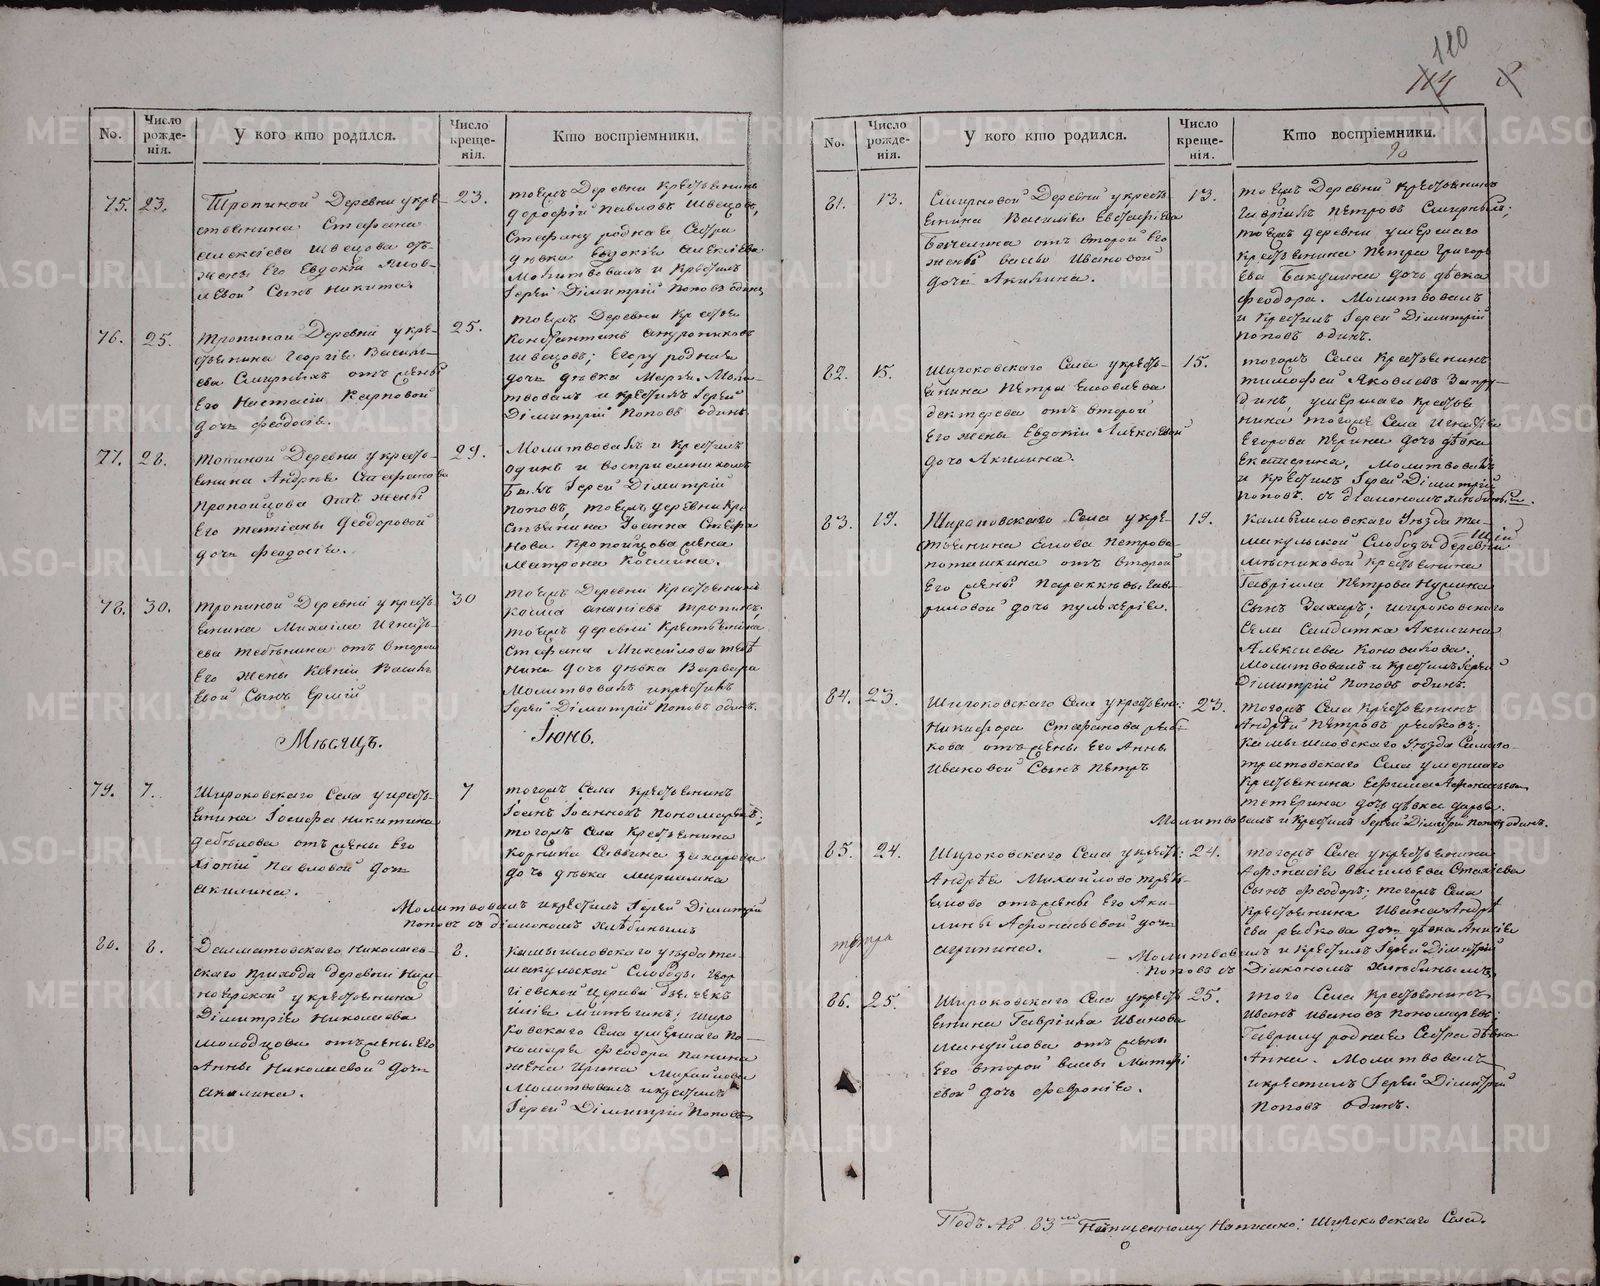 120
114
No.
Число рожде-нія.
У кого кто родился.
Число креще-нія.
Кто воспріемники.
75.
23.
Тропиной Деревни у кре-
стьянина Стефана
Алексіева Швецова отъ
жены Его Евдокіи Яков-
левой Сынъ Никита.
23.
тоежъ Деревни Крестьянинъ
дорофій Павловъ Швецовъ,
Стефану родная Сестра
дѣвка Евдокія Алексіева
Молитвовалъ и Крестилъ
Іерей Димитрій Поповъ одинъ
76.
25.
Тропиной Деревни у кре-
стьянина Георгія Василь-
ева Смирныхъ отъ жены
Его Настасіи Карповой
дочь Феодосія.
25.
тоежъ Деревни Крестья
Константинъ Андрониковъ
Швецовъ; Егору родная
дочь дѣвка Марѳа. Моли-
твовалъ и крестилъ Іерей
Димитрій Поповъ одинъ.
77.
28.
Топиной Деревни у кресть-
янина Андрея Стефанова
Пропойцова отъ жены
Его Татіаны Феодоровой
дочь Феодосія.
29.
Молитвовалъ и крестилъ
одинъ и воспріемникомъ
былъ Іерей Димитрій
Поповъ, тоежъ деревни Кре
стьянина Іоанна Стефа
нова Пропойцова жена
Матрона Космина.
78.
30.
Тропиной Деревни у кресть
янина Михаила Игнать-
ева тебѣнина отъ второй
Его жены Ксеніи Василь
евой Сынъ Ермій
30
тоежъ Деревни Крестьянинъ
Косма Ананіевъ Тропинъ;
тоежъ деревни Крестьянина
Стефана Михайлова тебѣ
нина дочь дѣвка Варвара
Молитвовалъ и крестилъ
Іерей Димитрій Поповъ одинъ.
Мѣсяцъ.
Іюнь.
79.
7.
Широковскаго Села у кресть-
янина Іосифа Никитина
дебѣлова отъ жены Его
Павловой дочь
Акилина.
7
тогожъ Села Крестьянинъ
Іоанъ Іоанновъ Пономаревъ;
тогожъ Села Крестьянина
Корнила Саввина Захарова
дочь дѣвка Маріамна
Молитвовалъ и крестилъ Іерей Димитрій
Поповъ съ діакономъ Хлѣбинымъ
80.
8.
Далматовскаго Николаев-
скаго прихода деревни
у крестьянина
Димитрія Николаева
Молодцова отъ жены Его
Анны Николаевой дочь
Акилина.
8.
Камышловскаго уѣзда та-
макульской Слободы Геор
гіевской Церкви дьячекъ
Митягинъ; Широ
ковскаго Села умершаго По-
номаря Феодора Панина
жена Ирина Михайлова
Молитвовалъ и крестилъ
Іерей Димитрій Поповъ
No.
Число рожде-нія.
У кого кто родился.
Число креще-нія.
Кто воспріемники.
81.
13.
Смирновой Деревни у кресть
янина Василія Евстафіева
Бакулина отъ второй Его
жены Вассы Ивановой
дочь Акилина.
13.
тоежъ Деревни Крестьянинъ
Гавріилъ Петровъ Смирныхъ;
тоежъ деревни умершаго
крестьянина Петра Григорь
ева Бакулина дочь дѣвка
Феодора. Молитвовалъ
и крестилъ Іерей Димитрій
Поповъ одинъ.
82.
15.
Широковскаго Села у кресть-
янина Петра Яковлева
дектерева отъ второй
Его жены Евдокіи Алексіевой
дочь Акилина.
15.
тогожъ Села Крестьянинъ
Тимофей Яковлевъ Запру-
динъ, умершаго Крестья
нина тогожъ Села Игнатія
Егорова Перина дочь дѣвка
Екатерина. Молитвовалъ
и крестилъ Іерей Димитрій
Поповъ. съ діакономъ Хлѣбинымъ.
83.
19.
Широковскаго Села у кре-
стьянина Іакова Петрова
поташкина отъ второй
Его жены Параскевы Гав-
риловой дочь Пульхерія.
19.
Камышловскаго Уѣзда та-
макульской Слободы деревни
мясниковой крестьянина
Гавріила Петрова Нужина
Сынъ Захаръ; Широковскаго
Села Салдатка Акилина
Алексіева Коновалова.
Молитвовалъ и крестилъ Іерей
Димитрій Поповъ одинъ.
84.
23.
Широковскаго Села у крестьяни:
Никифора Стефанова рыб-
кова отъ жены Его Анны
Ивановой Сынъ Петръ
23.
тогожъ Села Крестьянинъ
Андрей Петровъ рыбковъ;
Камышловскаго Уѣзда
Села умершаго
Крестьянина Ефима Афонасьева
тетерина дочь дѣвка дарья.
Молитвовалъ и Крестилъ Іерей Димитрій Поповъ одинъ.
85.
24.
Широковскаго Села у кресть:
Андрея Михайлова
отъ жены Его Аки-
лины Афонасьевой дочь
агрипина.
24.
тогожъ Села у крестьянина
Афонасія Васильева
Сынъ Феодоръ; тогожъ Села
Крестьянина Ивана Андре
ева рыбкова дочь дѣвка Анисія
Молитвовалъ и Крестилъ Іерей Димитрій
Поповъ съ Діакономъ Хлѣбинымъ.
86.
25.
Широковскаго Села у кресть
янина Гавріила Иванова
Мануйлова отъ жены
Его второй Вассы
евой дочь Февронія.
25.
того Села Крестьянинъ
Иванъ Ивановъ Пономаревъ;
Гаврилу родная Сестра дѣвка
Анна. Молитвовалъ
и крестилъ Іерей Димитрій
Поповъ одинъ.
Подъ № 83мъ Написанному Широковскаго Села.
METRIKI.GASO-URAL.RU